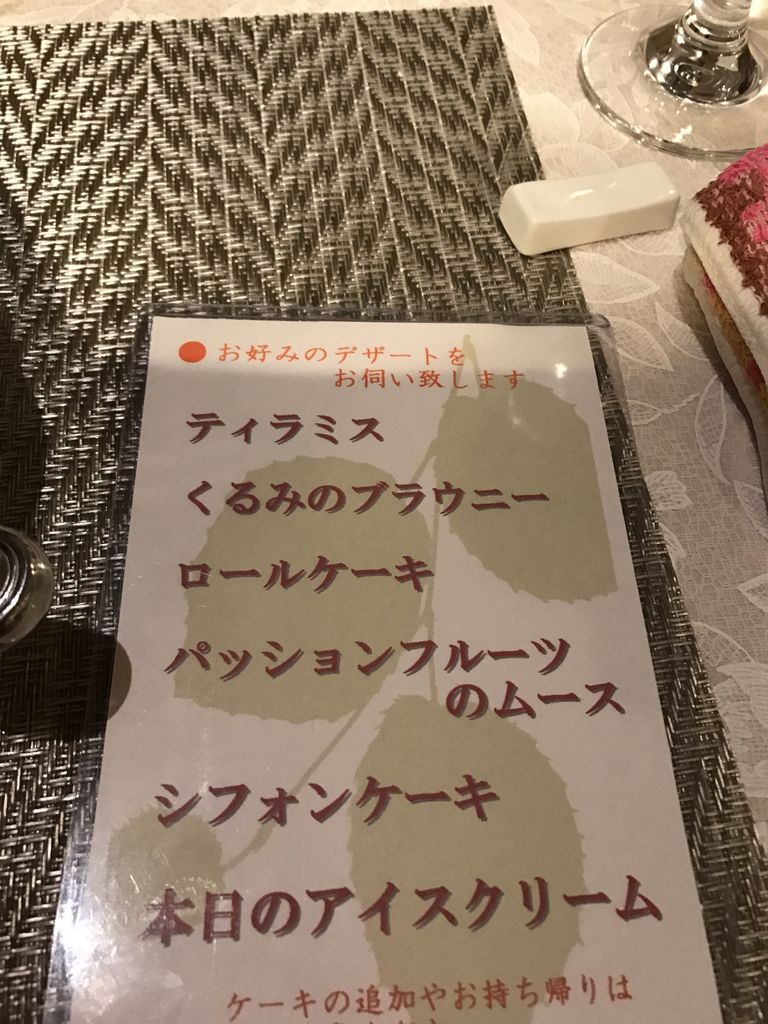 ● お好みのデザートを
お伺い致します
ティラミス
くるみのブラウニー
ロールケーキ
パッションフルーツ
のムース
シフォンケーキ
本日のアイスクリーム
ケーキの追加やお持ち帰りは